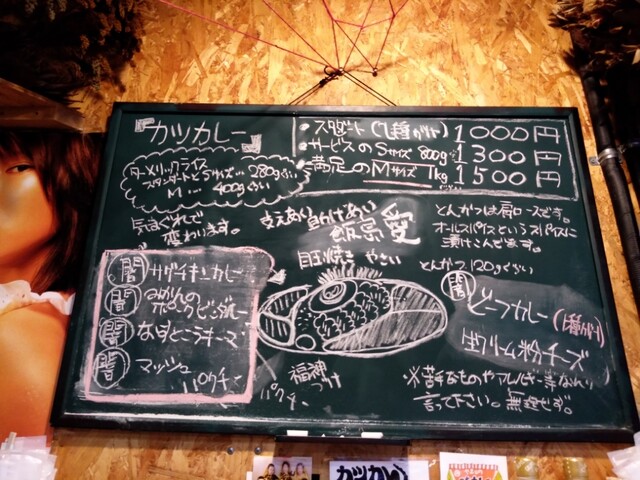 『カツカレー』
・スタンダート(1種がけ) 1000円
・サービスのSサイズ 800g 1300円
・満足のMサイズ 1kg 1500円
ターメリックライス
スタンダートとSサイズ… 280gぐらい
M… 400gぐらい
気まぐれで
変わります。
支えあい
飯島愛
目玉焼き やさい
とんかつは肩ロースです。
オールスパイスというスパイスに
漬けこんでます。
とんかつ 120gぐらい
闇 サグチキンカレー
闇
闇 なすとこうキーマ
闇 マッシュ
パクチー
福神
づけ
パクチー
闇
カレー(1種がけ)
粉チーズ
※苦手なものやアレルギー等
言って下さい。無理せず。
カツカレー